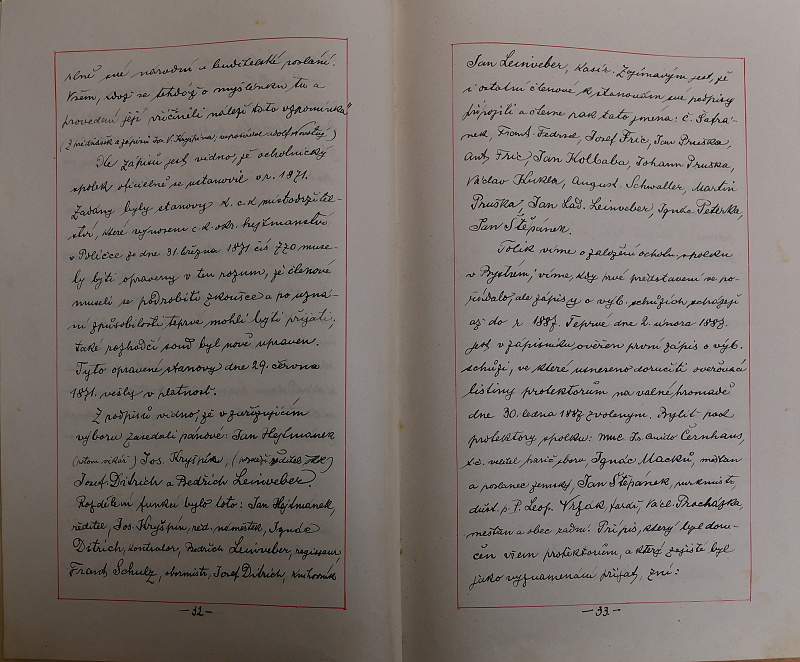 plně své národní a buditelské poslání.
Věřm, kdož se tehdy o myšlenku tu a
provedení její přičinili náleží tato vzpomínka"
(Z zápisů Jos. V. Kryšpína, Adolf)
Ze zápisů jest vidno, že ochotnický
spolek oficielně se ustanovil v r. 1871.
Zadány byly stanovy k. c. k. místodržitel-
ství, které výnosem c. k. okr. hejtmanství
v Poličce ze dne 31. března 1871 čís. 770 muse-
ly býti opraveny v ten rozum, že členové
museli se podrobiti zkoušce a po uzná-
ní způsobilosti teprve mohli býti přijati;
také rozhodčí soud byl nově upraven.
Tyto opravené stanovy dne 29. června
1871. vešly v platnost.
Z podpisů vidno, že v zařizujícím
výboru zasedali pánové: Jan Hejtmánek
Jos. Kryšpín, (
Josef Ditrich a Bedřich Leinveber.
Rozdělení funkcí bylo toto: Jan Hejtmánek,
ředitel, Jos. Kryšpín, řed. náměstek, Ignác
Ditrich, kontrolor, Bedřich Leinveber, regisseur,
Frant. Schulz, sbormistr, Josef Ditrich, knihovník
— 32 —
Jan Leinveber, kasír. Zajímavým jest, že
i ostatní členové k stanovám své podpisy
připojili a čteme pak tato jmena: Č. Šafrá-
nek, Frant. Fedrsel, Josef Fric, Jan Pruška,
Ant. Fric, Jan Kolbaba, Johann Pruška,
Václav Kukla, August Schwaller, Martin
Pruška, Jan Lad. Leinveber, Ignác Peterka,
Jan Štěpánek.
Tolik víme o založení ochotn. spolku
v Bystrém; víme, kdy prvé představení se po-
řádalo, ale zápisy o výb. schůzích scházejí
až do r. 1887. Teprvé dne 2. února 1887.
jest v zápisníku ověřen první zápis o výb.
schůzi, ve které usneseno doručiti ověřovací
listiny protektorům na valné hromadě
dne 30. ledna 1887 zvoleným. Byli t. pod
protektory spolku: Muc. Fr. Quido Černhaus,
t. č. velitel hasič. sboru, Ignác Macků, měšťan
a poslanec zemský, Jan Štěpánek, purkmistr,
důst. p. P. Leop. Vrzák farář, Václ. Procházka,
měšťan a obec. radní. Přípis, který byl doru-
čen všem protektorům, a který zajisté byl
jako vyznamenání přijat, zní:
— 33 —